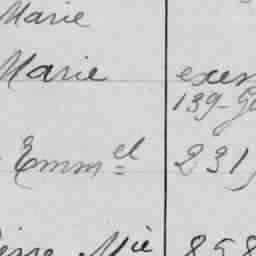 Marie
Marie exer
139-
Emm el 231
Mie 858